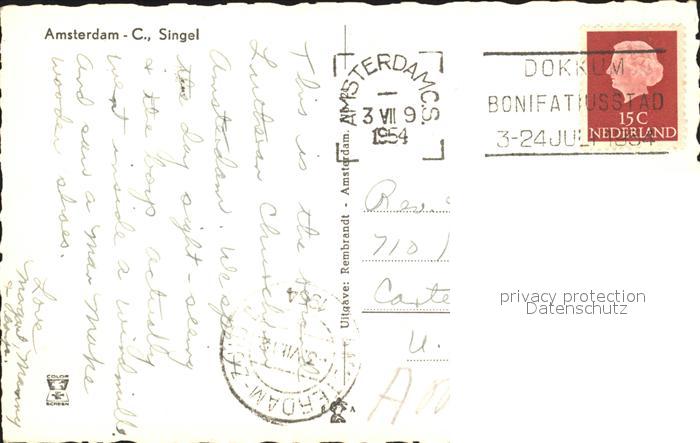 Amsterdam - C., Singel
This is the
Lutheran Church in
Amsterdam. We spent
the day sight-seeing
& the boys actually
went inside a windmill
and saw a man make
wooden shoes.
Love
Manny
COLOR
SCREEN
Uitgave: Rembrandt - Amsterdam.
AMSTERDAM C.S.
3 VII 9
1954
DOKKUM
BONIFATIUSSTAD
3-24 JULI 1954
15C
NEDERLAND
Rev.
710
Carte
U.
privacy protection
Datenschutz